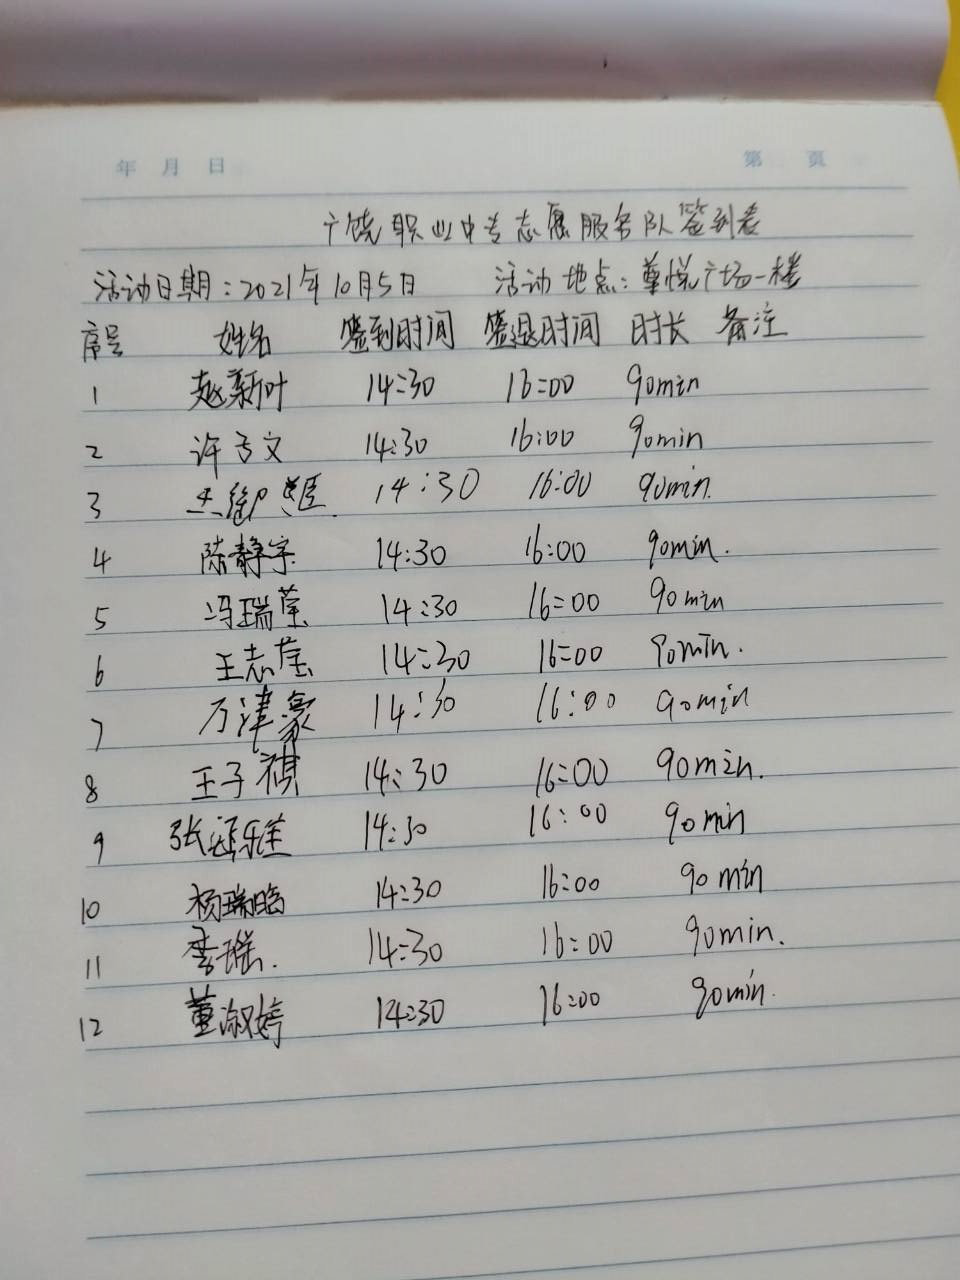 年 月 日 第 页
广饶职业中专志愿服务队签到表
活动日期：2021年10月5日 活动地点：尊悦广场一楼
序号 姓名 签到时间 签退时间 时长 备注
1 赵新叶 14:30 16:00 90min
2 许言文 14:30 16:00 90min
3 14:30 16:00 90min.
4 陈静宇 14:30 16:00 90min.
5 冯瑞莹 14:30 16:00 90min
6 王志莹 14:30 16:00 90min.
7 万津豪 14:30 16:00 90min
8 王子祺 14:30 16:00 90min.
9 张 14:30 16:00 90min
10 杨瑞晗 14:30 16:00 90min
11 李瑶. 14:30 16:00 90min.
12 董淑婷 14:30 16:00 90min.